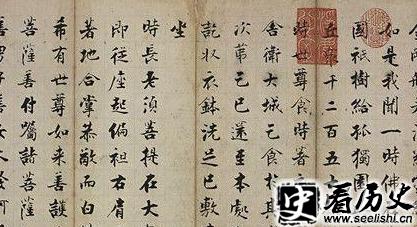 如是我聞一時佛
國祇樹給孤獨園
千二百五
時世尊食時著
舍衛大城乞食於其
次第乞已還至本處
訖收衣鉢洗足已敷
坐
時長老須菩提在大
即從座起偏袒右肩
著地合掌恭敬而白
希有世尊如來善護
菩薩善付囑諸菩薩
善男子善女人發阿
史 看历史
www.seelishi.cn